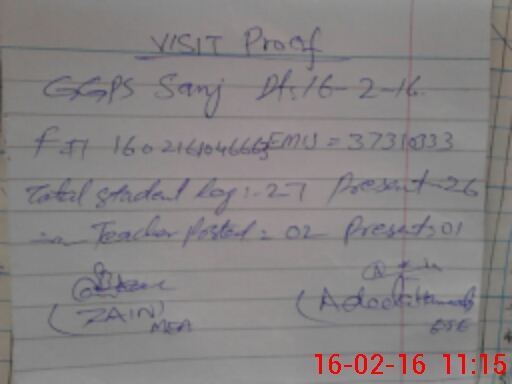 VISIT Proof
GGPS Sanj Dt: 16-2-16.
EMIS = 37310333
Total student Reg:- 27 Present - 26
Teacher Posted = 02 Present: 01
(ZAIN)
MEA
ESE
16-02-16 11:15